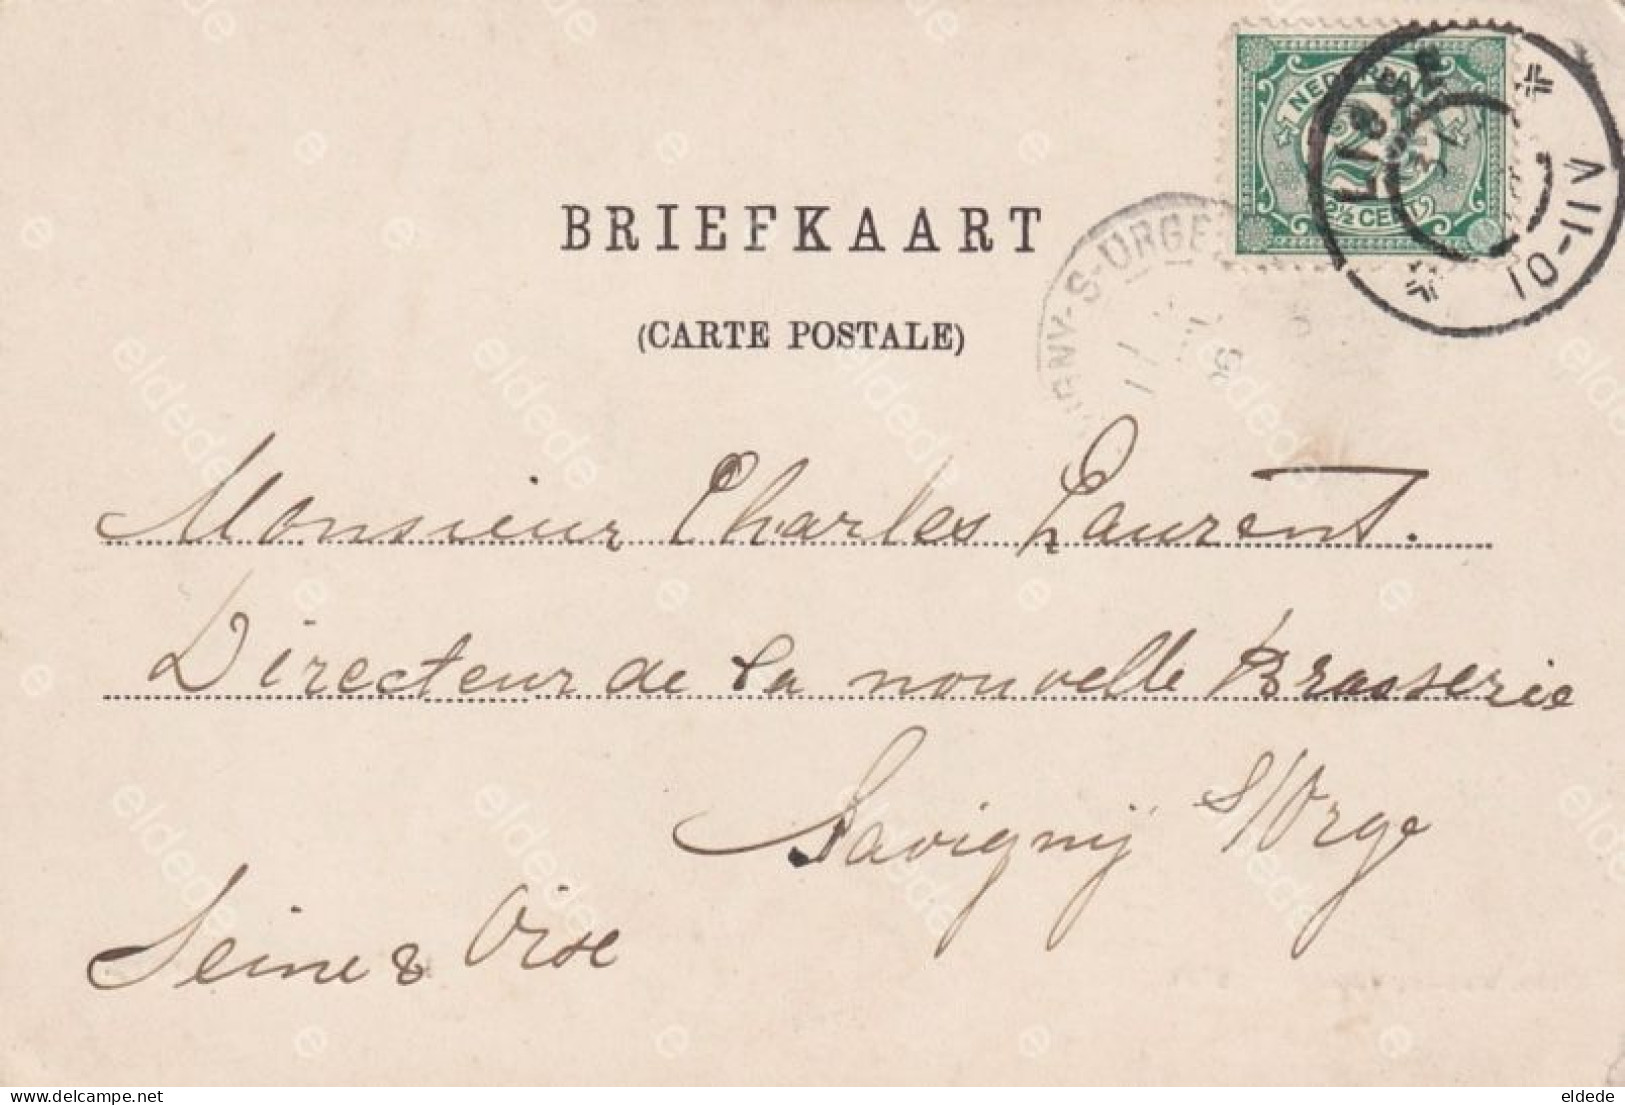 NEDERLAND
2½ CENT
10-11 V
BRIEFKAART
S-ORGE
(CARTE POSTALE)
Monsieur Charles Laurent.
Directeur de la nouvelle Brasserie
Savigny s/Orge
Seine & Oise
eldede
delcampe.net
eldede